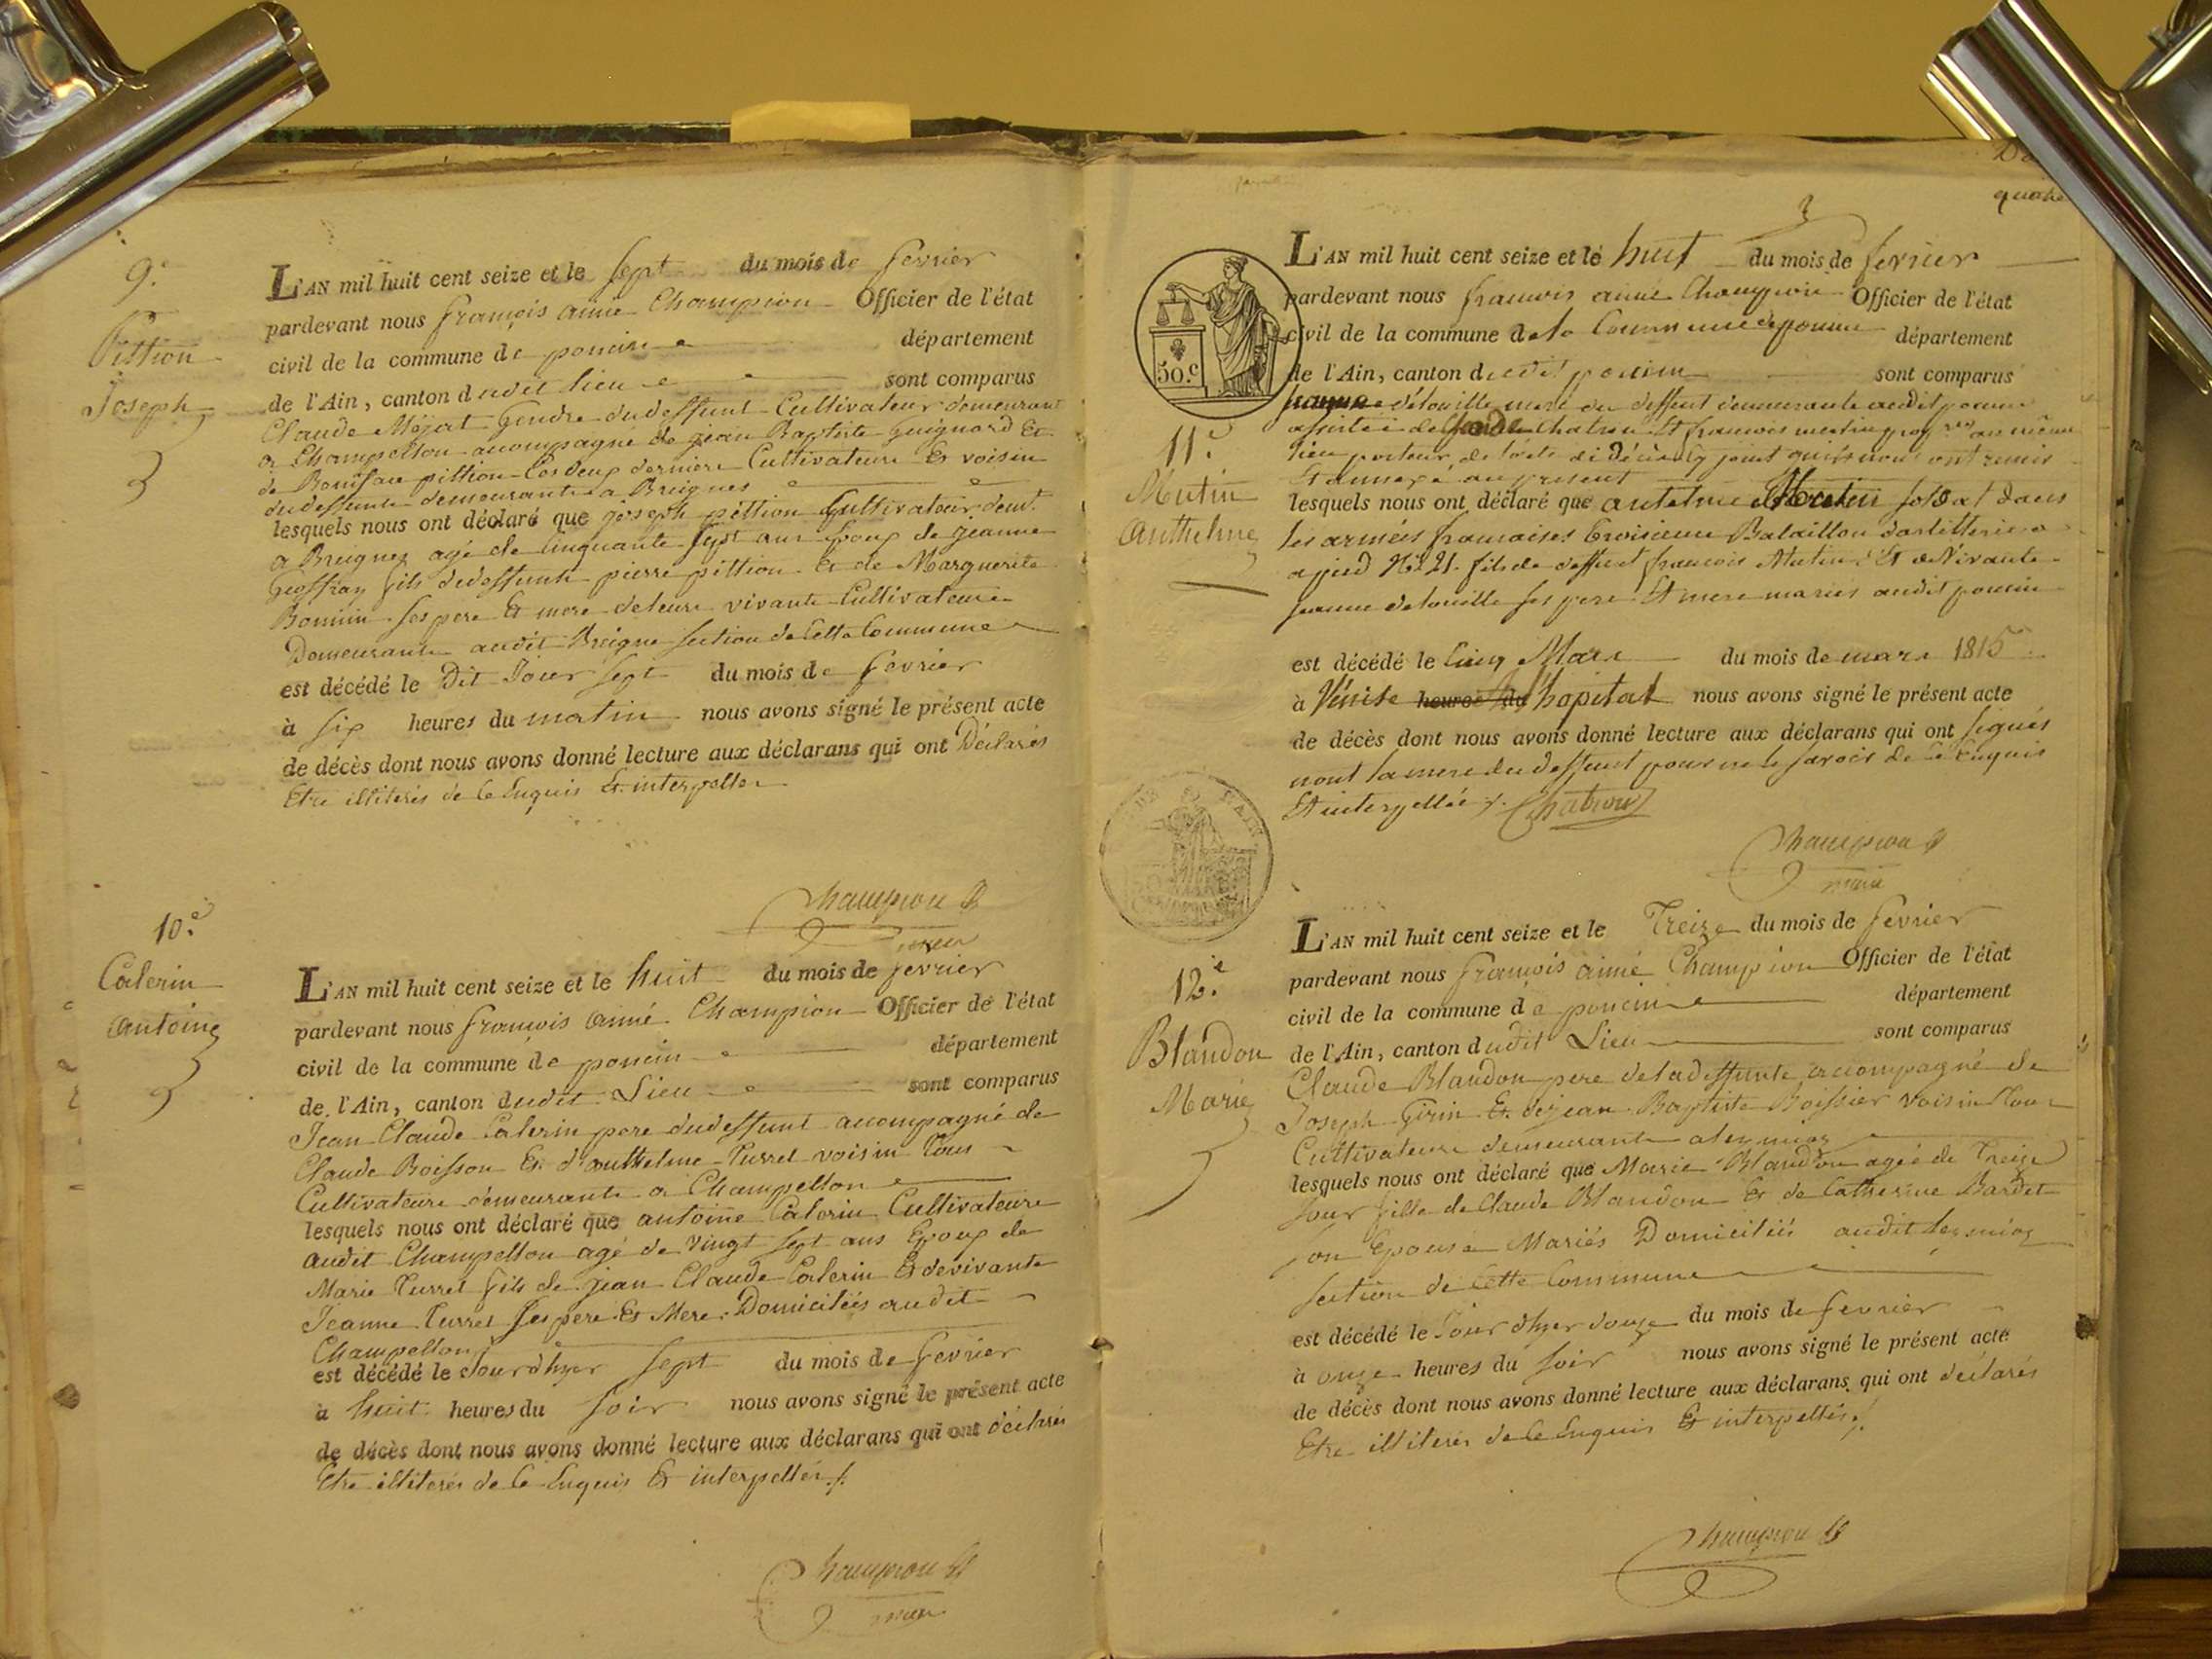 9.e
Pittion
Joseph
L'AN mil huit cent seize et le sept du mois de fevrier
pardevant nous françois aimé Champion Officier de l'état
civil de la commune de poncin département
de l'Ain, canton dudit lieu sont comparus
Claude Méjat Gendre dudeffunt Cultivateur demeurant
a Champeillon accompagné de jean Baptiste Guignard Et
de Boniface pittion Les deux derniers Cultivateurs Et voisin
dudeffunt demeurants a Breignes
lesquels nous ont déclaré que joseph pittion Cultivateur demt.
a Breignes agé de Cinquante sept ans Epoux de jeanne
Geoffray fils dedeffunts pierre pittion Et de Marguerite
Bonnin ses pere Et mere deleurs vivants Cultivateurs
Demeurants audit Breigne section de Cette Commune
est décédé le Dit Jour sept du mois de fevrier
à six heures du matin nous avons signé le présent acte
de décès dont nous avons donné lecture aux déclarans qui ont Déclarés
Etre illiterés de Ce Enquis Et interpeller
Champion
maire
10.e
Calerin
Antoine
L'AN mil huit cent seize et le huit du mois de fevrier
pardevant nous françois aimé Champion Officier de l'état
civil de la commune de poncin département
de l'Ain, canton dudit Lieu sont comparus
Jean Claude Calerin pere dudeffunt accompagné de
Claude Boisson Et d'anthelme Turrel voisin Tous
Cultivateurs demeurants a Champeillon
lesquels nous ont déclaré que antoine Calerin Cultivateure
audit Champeillon agé de Vingt sept ans Epoux de
Marie Turrel fils de jean Claude Calerin Et devivante
Jeanne Turrel ses pere Et Mere Domiciliés audit
Champeillon
est décédé le Jourdhyer sept du mois de fevrier
à huit heures du soir nous avons signé le présent acte
de décès dont nous avons donné lecture aux déclarans qui ont déclarés
Etre illiterés de Ce Enquis Et interpellés ./.
Champion
maire
quatre
50.c
11.e
Mutin
Anthelme
L'AN mil huit cent seize et le huit du mois de fevrier
pardevant nous françois aimé Champion Officier de l'état
civil de la commune dela Commune de poncin département
de l'Ain, canton dudit poncin sont comparus
detouille mere du deffunt demeurante audit poncin
assistée de Chatron Et francois
lieu porteur de de Décès Cy joint quils nous ont remis
Et annexé au present
lesquels nous ont déclaré que antelme Mutin soldat dans
les armées francaises troisieme Bataillon dartillerie
a pied fils de deffunt francois Mutin Et de Vivante
jeanne detouille ses pere Et mere mariés audit poncin
est décédé le Cinq Mars du mois de mars 1815
à Vénise heures du l'hopital nous avons signé le présent acte
de décès dont nous avons donné lecture aux déclarans qui ont signés
nont la mere du deffunt pour ne le savoir de Ce Enquis
Et interpellée ./. Chatron
Champion
maire
12.e
Blandon
Marie
L'AN mil huit cent seize et le Treize du mois de fevrier
pardevant nous françois aimé Champion Officier de l'état
civil de la commune de poncin département
de l'Ain, canton dudit Lieu sont comparus
Claude Blandon pere deladeffunte accompagné de
Joseph Girin Et dejean Baptiste Boissier voisin Tous
Cultivateurs demeurants
lesquels nous ont déclaré que Marie Blandon agée de Treize
Jour fille de Claude Blandon Et de Catherine Bardet
son Epouse Mariés Domiciliés audit
section de Cette Commune
est décédé le Jour dhyer douze du mois de fevrier
à onze heures du soir nous avons signé le présent acte
de décès dont nous avons donné lecture aux déclarans qui ont déclarés
Etre illiterés de Ce Enquis Et interpellés ./.
Champion